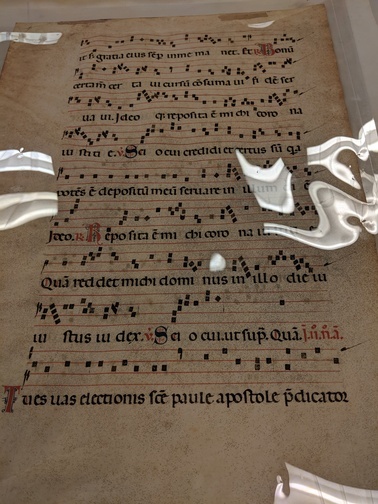 ut gratia eius sēp in me ma net. Et Bonū
certam̄ cer ta ui cursū cōsumaui fi dē ser
ua ui. Ideo q; reposita ē mi chi coro na
iu sti ti e. ℣. Sci o cui credidi et certus sū qa
potēs ē depositū meū seruare in illum
Ideo. ℟. Reposita ē mi chi coro na iu
Quā reddet michi domi nus in illo die iu
iu stus iu dex. ℣. Sci o cui. ut sup̄. Quā. I.
Tu es uas electionis scē paule apostole p̄dicator